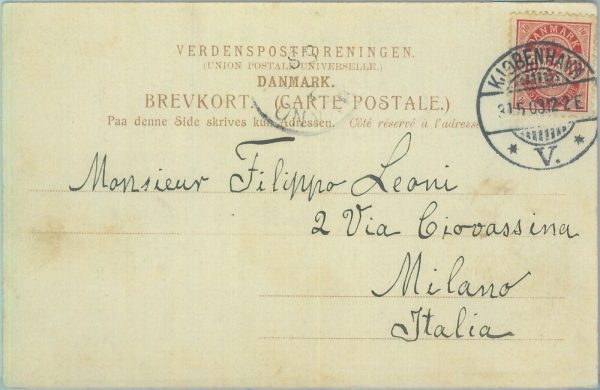 VERDENSPOSTFORENINGEN.
(UNION POSTALE UNIVERSELLE.)
DANMARK.
BREVKORT. (CARTE POSTALE.)
Paa denne Side skrives kun Adressen. Côté réservé à l'adresse
DANMARK
KJØBENHAVN
31.5.03.12-2E
V.
Monsieur Filippo Leoni
2 Via Ciovassina
Milano
Italia